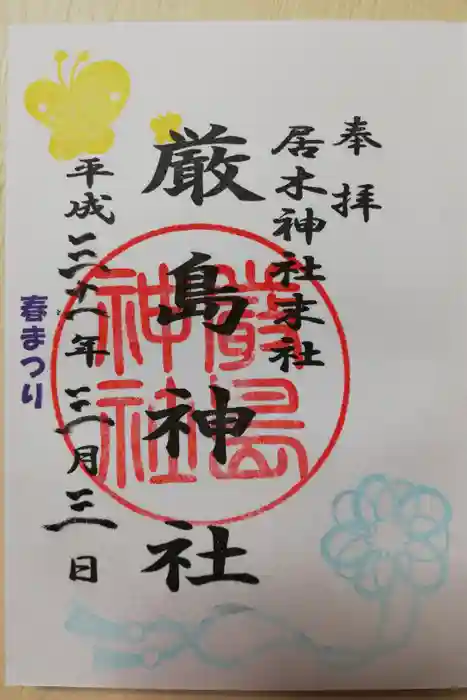 奉拝
居木神社末社
厳島神社
厳島
神社
平成三十一年三月三日
春まつり